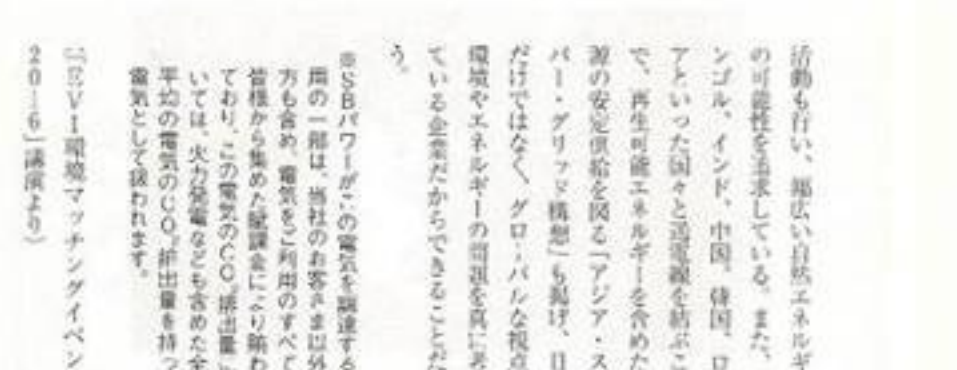 活動も行い、幅広い自然エネルギ
の可能性を追求している。また、
ンゴル、インド、中国、韓国、ロ
アといった国々と送電線を結ぶこ
で、再生可能エネルギーを含めた
源の安定供給を図る「アジア・ス
パー・グリッド構想」も掲げ、日
だけではなく、グローバルな視点
環境やエネルギーの問題を真に考
ている企業だからできることだ
う。
※SBパワーがこの電気を調達する
用の一部は、当社のお客さま以外
方も含め、電気をご利用のすべて
皆様から集めた賦課金により賄わ
ており、この電気のCO₂排出量
いては、火力発電なども含めた全
平均の電気のCO₂排出量を持っ
電気として扱われます。
(「EVI環境マッチングイベン
2016」講演より)